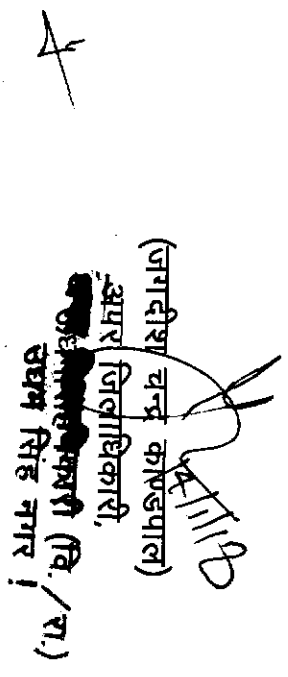 (जगदीश चन्द्र काण्डपाल)
अपर जिलाधिकारी,
(वि./रा.)
उधम सिंह नगर।
4/11/18